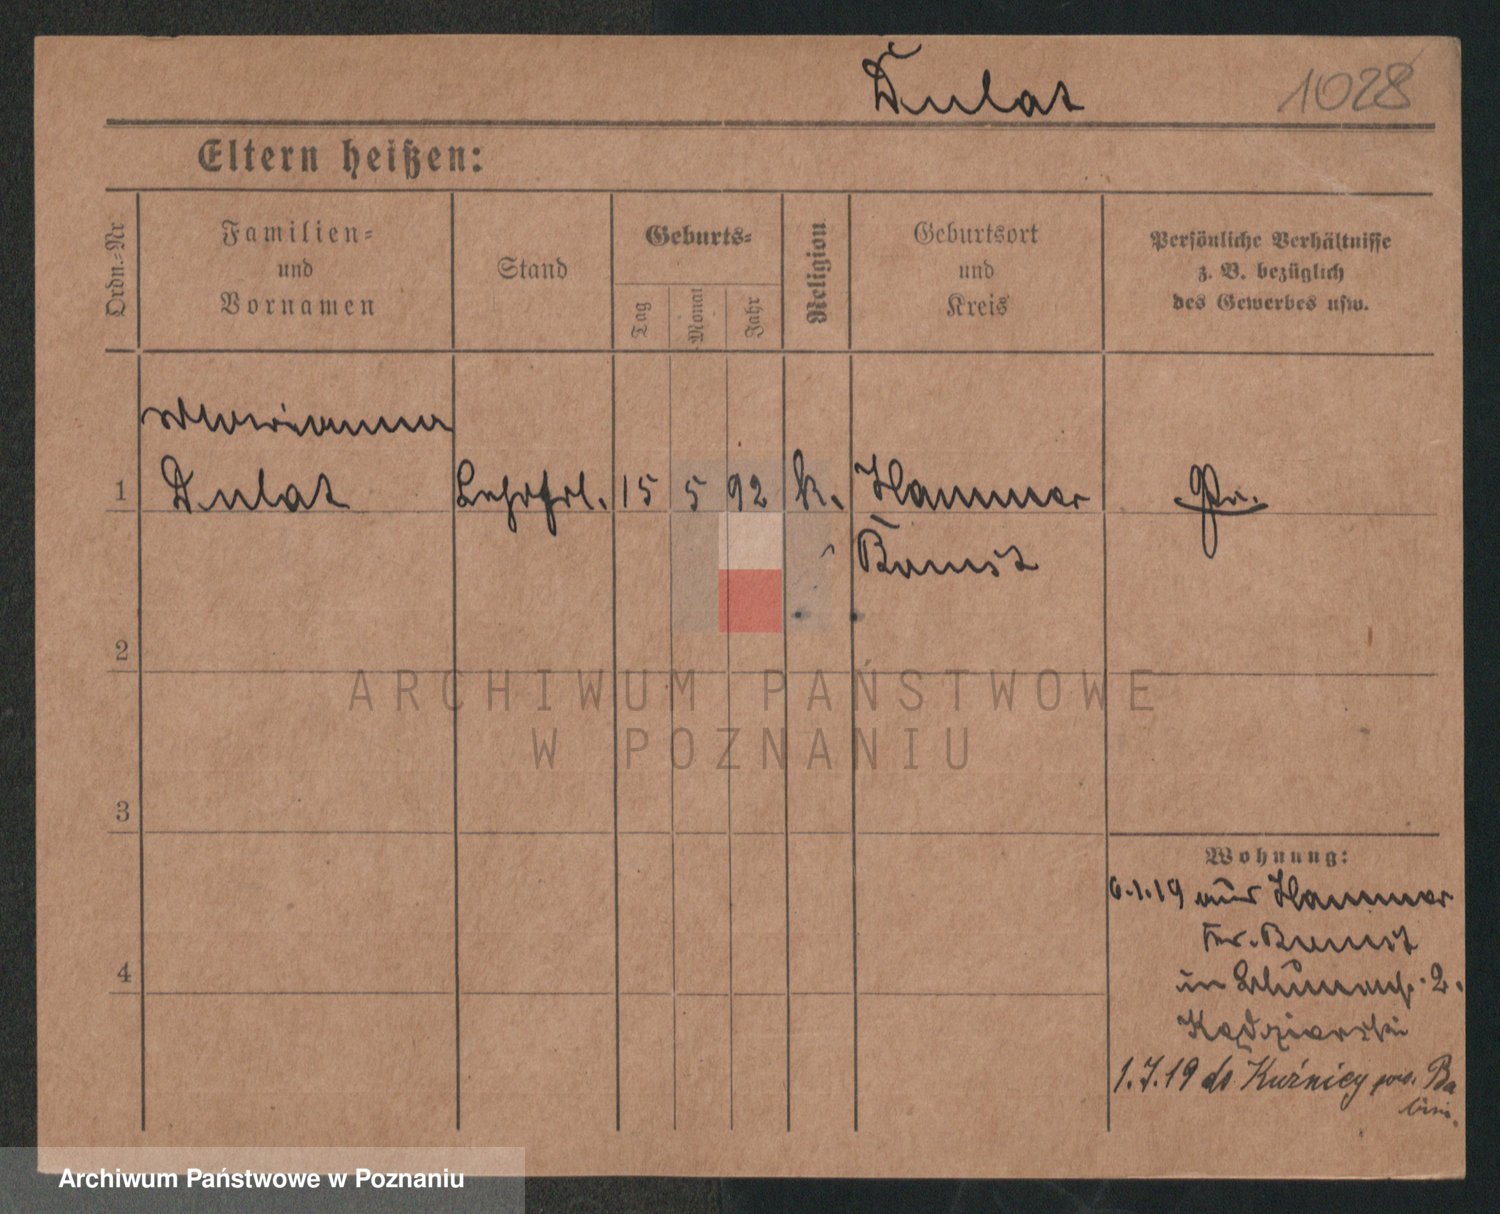 Dulat 1028
Eltern heißen:
Ordn.-Nr
Familien-
und
Vornamen
Stand
Geburts-
Tag
Monat
Jahr
Religion
Geburtsort
und
Kreis
Persönliche Verhältnisse
z. B. bezüglich
des Gewerbes usw.
Marianna
1 Dulat Lehrfrl. 15 5 92 k. Hammer Pr.
Bomst
2
ARCHIWUM PAŃSTWOWE
W POZNANIU
3
Wohnung:
6.1.19 aus Hammer
Kr. Bomst
in Blumenstr. 2.
Kędzierski
4
1.7.19 do Kuźnicy pow. Ba
bim.
Archiwum Państwowe w Poznaniu